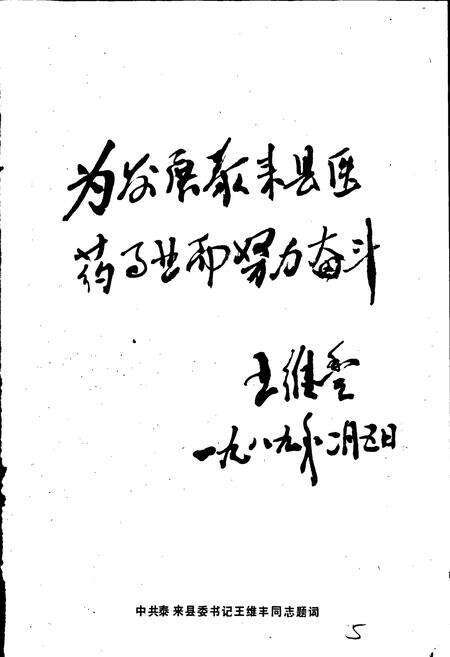 为发展泰来县医
药事业而努力奋斗
王维丰
一九八九年二月五日
中共泰来县委书记王维丰同志题词
5